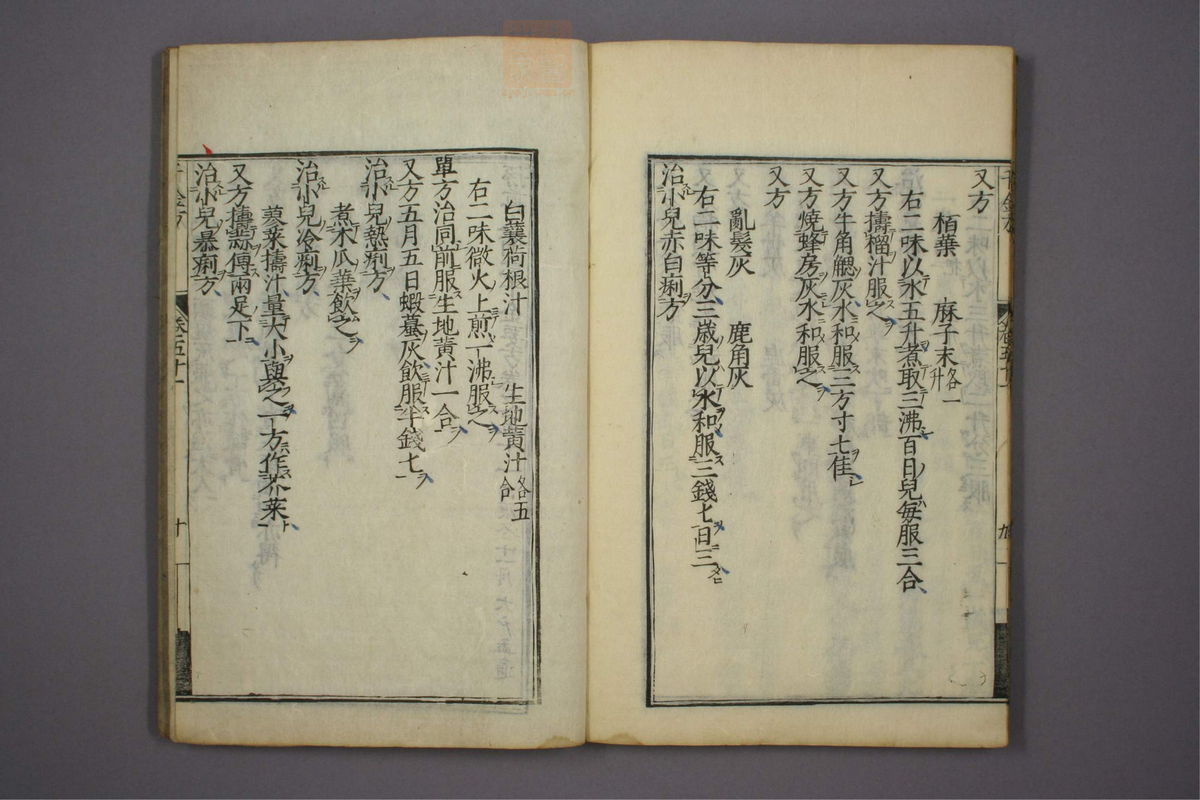 又方
栢葉　麻子末各一升
右二味以水五升煮取三沸百日兒毎服三合
又方擣榴汁服之
又方牛角䚡灰水和服三方寸匕佳
又方燒蜂房灰水和服之
又方
亂髮灰　鹿角灰
右二味等分三歲兒以水和服三錢匕日三
治小兒赤白痢方
白蘘荷根汁　生地黄汁各五合
右二味微火上煎一沸服之
單方治同前服生地黄汁一合
又方五月五日蝦蟇灰飲服半錢匕
治小兒熱痢方
煮木瓜葉飲之
治小兒冷痢方
蓼菜擣汁量大小與之一方作芥菜
又方擣蒜傅兩足下
治小兒暴痢方
十